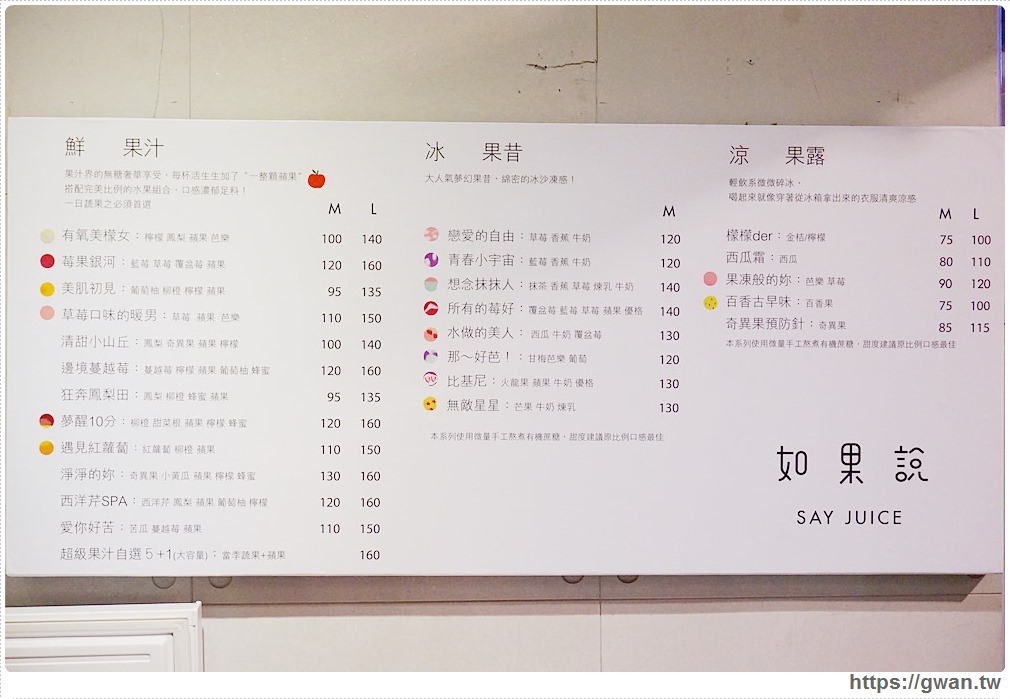 鮮 果汁
果汁界的無糖奢華享受，每杯活生生加了“一整顆蘋果”
搭配完美比例的水果組合，口感濃郁足料！
一日蔬果之必須首選
M L
有氧美檬女：檸檬 鳳梨 蘋果 芭樂 100 140
莓果銀河：藍莓 草莓 覆盆莓 蘋果 120 160
美肌初見：葡萄柚 柳橙 檸檬 蘋果 95 135
草莓口味的暖男：草莓 蘋果 芭樂 110 150
清甜小山丘：鳳梨 奇異果 蘋果 檸檬 100 140
邊境蔓越莓：蔓越莓 檸檬 蘋果 葡萄柚 蜂蜜 120 160
狂奔鳳梨田：鳳梨 柳橙 蜂蜜 蘋果 95 135
夢醒10分：柳橙 甜菜根 蘋果 檸檬 蜂蜜 120 160
遇見紅蘿蔔：紅蘿蔔 柳橙 蘋果 110 150
淨淨的妳：奇異果 小黃瓜 蘋果 檸檬 蜂蜜 130 160
西洋芹SPA：西洋芹 鳳梨 蘋果 葡萄柚 檸檬 120 160
愛你好苦：苦瓜 蔓越莓 蘋果 110 150
超級果汁自選５+1(大容量)：當季蔬果+蘋果 160
冰 果昔
大人氣夢幻果昔、綿密的冰沙凍感！
M
戀愛的自由：草莓 香蕉 牛奶 120
青春小宇宙：藍莓 香蕉 牛奶 120
想念抹抹人：抹茶 香蕉 草莓 煉乳 牛奶 140
所有的莓好：覆盆莓 藍莓 草莓 蘋果 優格 140
水做的美人：西瓜 牛奶 覆盆莓 130
那～好芭！：甘梅芭樂 葡萄 120
比基尼：火龍果 蘋果 牛奶 優格 130
無敵星星：芒果 牛奶 煉乳 130
本系列使用微量手工熬煮有機蔗糖，甜度建議原比例口感最佳
涼 果露
輕飲系微微碎冰，
喝起來就像穿著從冰箱拿出來的衣服清爽涼感
M L
檬檬der：金桔/檸檬 75 100
西瓜霜：西瓜 80 110
果凍般的妳：芭樂 草莓 90 120
百香古早味：百香果 75 100
奇異果預防針：奇異果 85 115
本系列使用微量手工熬煮有機蔗糖，甜度建議原比例口感最佳
如果說
SAY JUICE
https://gwan.tw